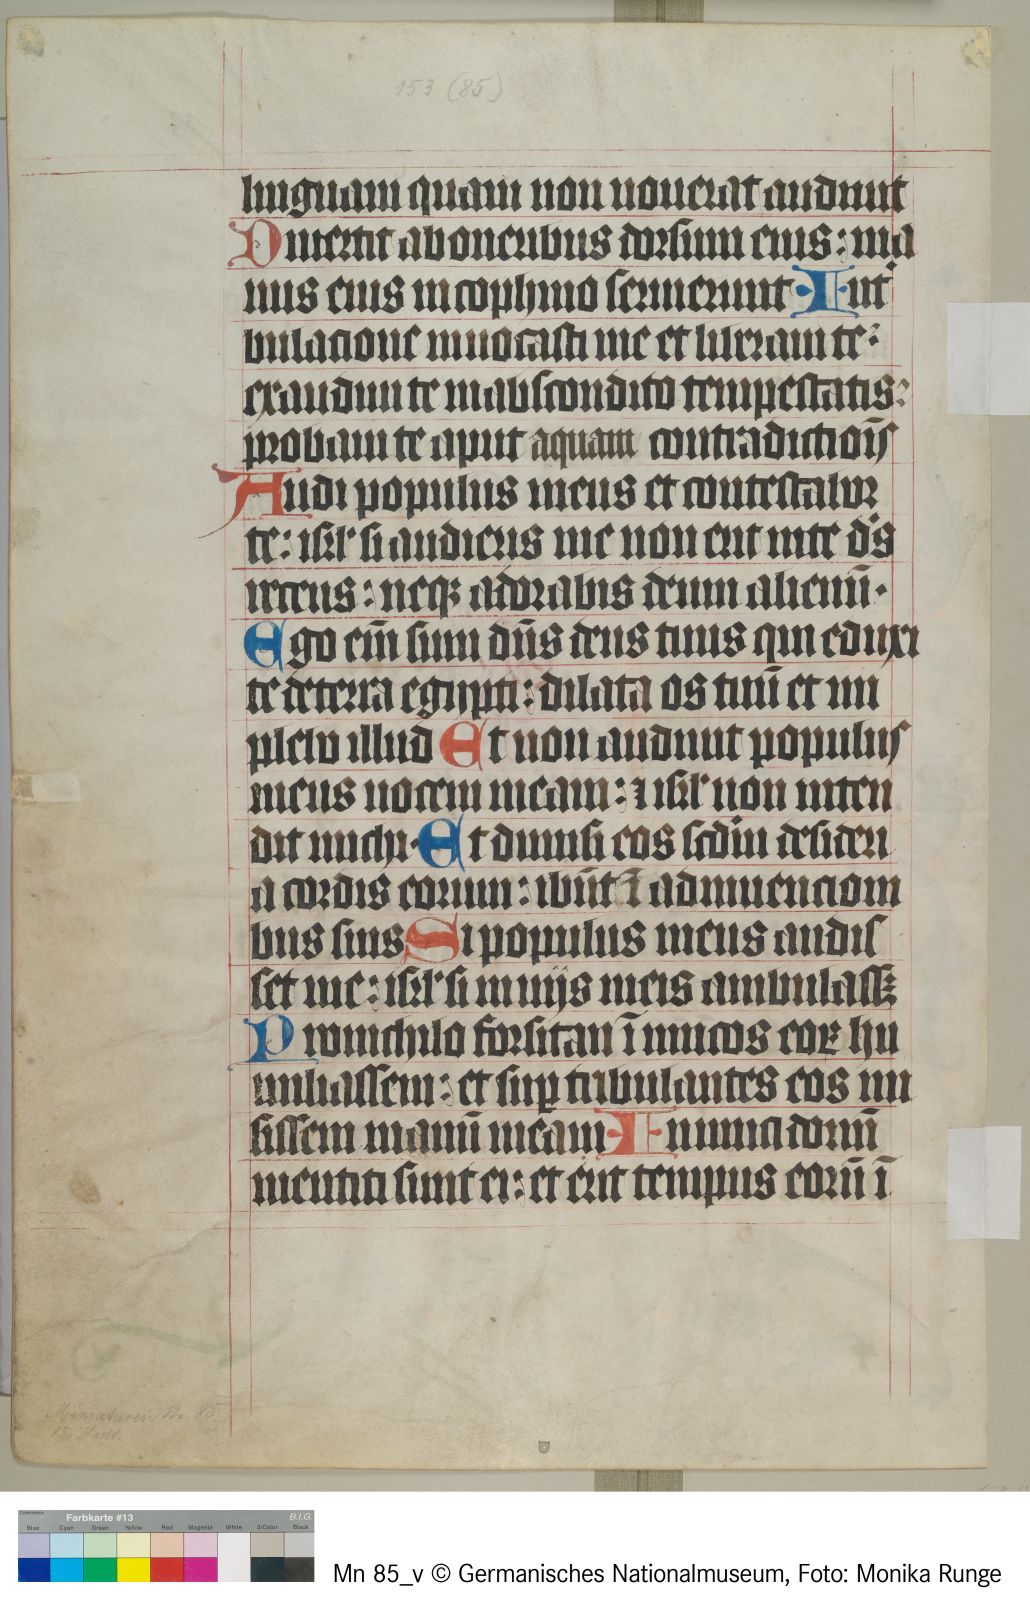 153 (85)
linguam quam non nouerat audiuit
Diuertit ab oneribus dorsum eius: ma
nus eius in cophino seruierunt In t͛
bulacione inuocasti me et liberaui te:
exaudiui te in abscondito tempestatis:
probaui te aput aquam contradictiōis
Audi populus meus et contestabor
te: isrl' si audieris me non erit in te d's
recens: neqꝫ adorabis deum alienū.
Ego em̄ sum dn̄s deus tuus qui eduxi
te de terra egypti: dilata os tuū et im
plebo illud Et non audiuit populus
meus uocem meam: ⁊ isrl' non inten
dit michi. Et dimisi eos scd'm desideri
a cordis eorum: ibūt ī adinuencioni
bus suis Si populus meus audis
set me: isrl' si in uijs meis ambulassꝫ
Pro nichilo forsitan īimicos eoꝝ hu
miliassem: et suꝑ tribulantes eos mi
sissem manū meam Inimici domī
mentiti sunt ei: et erit tempus eorū ī
Miniaturen Nr. 85
Farbkarte #13
B.I.G.
Blue Cyan Green Yellow Red Magenta White 3/Color Black
Mn 85_v © Germanisches Nationalmuseum, Foto: Monika Runge